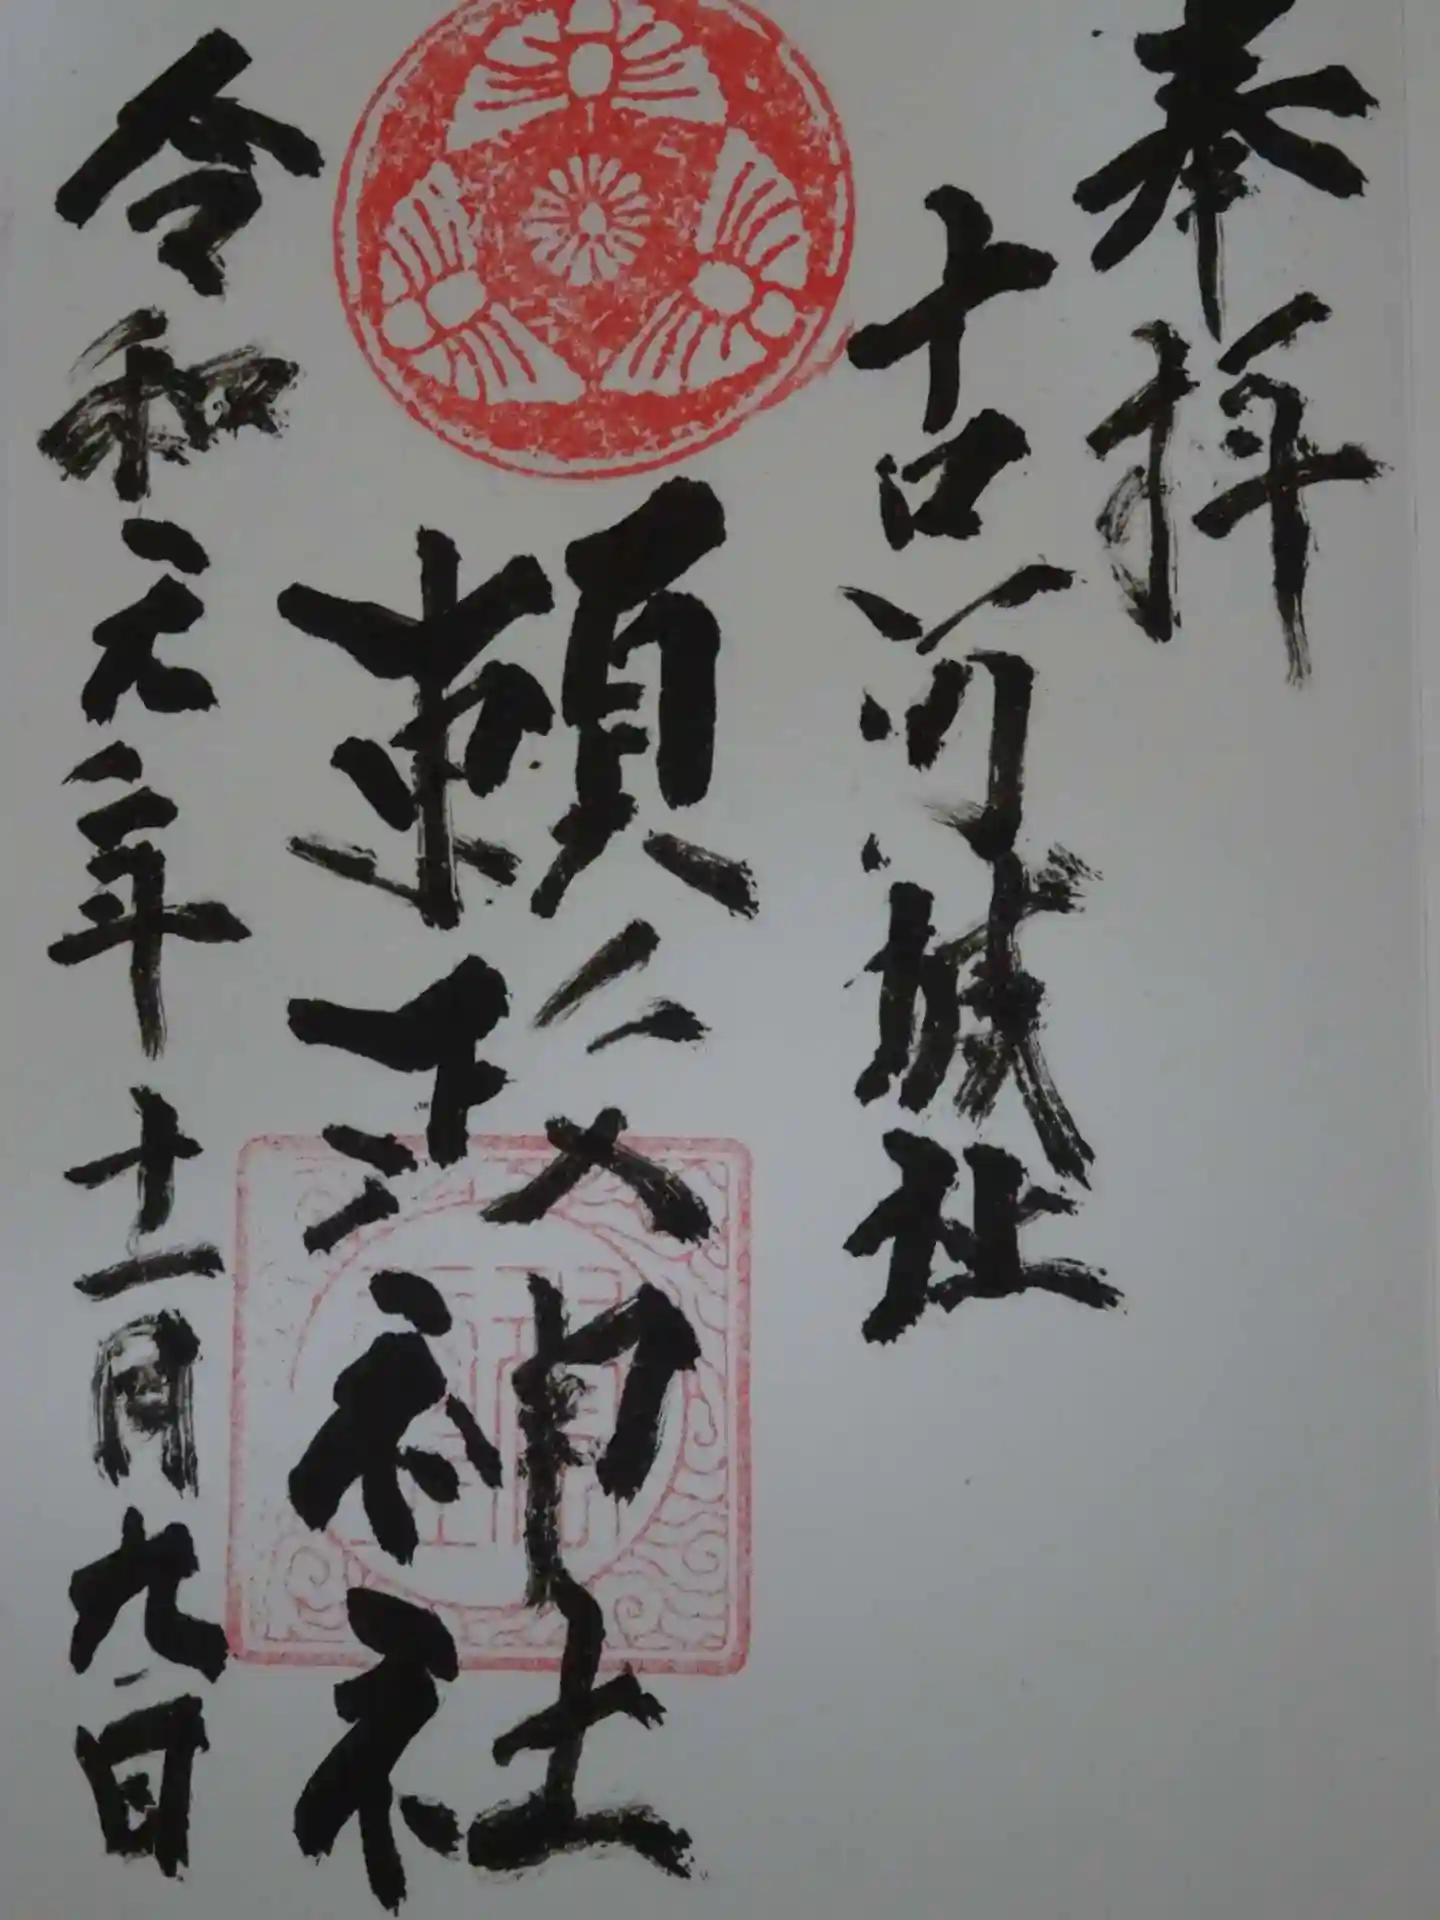 奉拝
古河城社
頼政神社
令和元年十一月九日